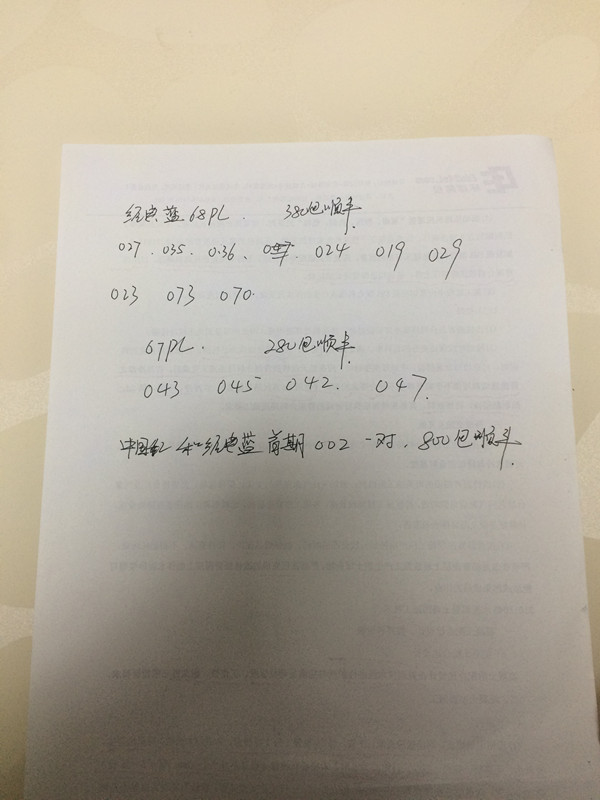 经典蓝68PL. 380包顺丰.
027. 035. 036、 024 019 029
023 073 070.
67PL. 280包顺丰.
043 045 042. 047.
中国红和经典蓝前期002一对. 800包顺丰.